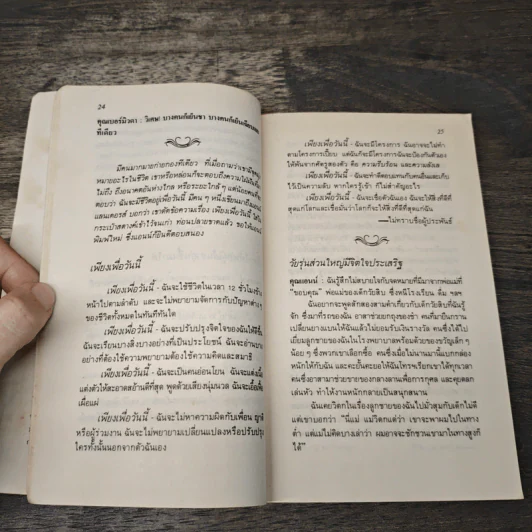 24
คุณเบอร์นิวดา : วิเศษ! บางคนก็ยินชา บางคนก็ยินเฉียบ
ทีเดียว
มีคนมากมายก่ายกองทีเดียว ที่เมื่อถามว่าเขามี
หมายอะไรในชีวิต เขาหรือหล่อนก็จะตอบถึงความ
ไม่ถึง ถึงอนาคตอันห่างไกล หรือระยะใกล้ ๆ แต่น้อยคน
ตอบว่า ฉันจะมีชีวิตอยู่เพื่อวันนี้ มีคน ๆ หนึ่งเขียนมาถึง
แลนเดอรส์ บอกว่า เขาตัดข้อความเรื่อง เพียงเพื่อวันนี้ ใส่ใน
กระเป๋าสตางค์เสร็จไว้จนเก่า ก่อนปลายขาดแล้ว ขอให้
พิมพ์ใหม่ ซึ่งแอนน์ก็ยินดีตอบสนอง
เพียงเพื่อวันนี้
เพียงเพื่อวันนี้ - ฉันจะใช้ชีวิตในเวลา 12 ชั่วโมงข้าง
หน้าไปตามลำดับ และจะไม่พยายามจัดการกับปัญหาต่าง ๆ
ของชีวิตทั้งหมดในทันทีทันใด
เพียงเพื่อวันนี้ - ฉันจะปรับปรุงจิตใจของฉันให้ดีขึ้น
ฉันจะเรียนบางสิ่งบางอย่างที่เป็นประโยชน์ ฉันจะอ่านบาง
อย่างที่ต้องใช้ความพยายามต้องใช้ความคิดและสมาธิ
เพียงเพื่อวันนี้ - ฉันจะเป็นคนอ่อนโยน ฉันจะแต่ง
แต่งตัวให้สะอาดสะอ้านดีที่สุด พูดด้วยเสียงนุ่มนวล ฉันจะเอื้อเฟื้อ
เผื่อแผ่
เพียงเพื่อวันนี้ - ฉันจะไม่หาความผิดกับเพื่อน ญาติ
หรือผู้ร่วมงาน ฉันจะไม่พยายามเปลี่ยนแปลงหรือปรับปรุง
ใครทั้งนั้นนอกจากตัวฉันเอง
25
เพียงเพื่อวันนี้ - ฉันจะมีโครงการ ฉันอาจจะไม่ทำ
ตามโครงการเปี๊ยบ แต่ฉันก็จะมีโครงการ ฉันจะป้องกันตัวเอง
ให้พ้นจากศัตรูสองตัว คือ ความรีบร้อน และความลังเล
เพียงเพื่อวันนี้ - ฉันจะทำดีตอบแทนกับคนอื่นและเก็บ
ไว้เป็นความลับ หากใครรู้เข้า ก็ไม่สำคัญอะไร
เพียงเพื่อวันนี้ - ฉันจะเชื่อตัวฉันเอง ฉันจะให้สิ่งที่ดีที่
สุดแก่โลกและเชื่อมั่นว่าโลกก็จะให้สิ่งที่ดีที่สุดแก่ฉัน
—ไม่ทราบชื่อผู้ประพันธ์
วัยรุ่นส่วนใหญ่มีจิตใจประเสริฐ
คุณแอนน์ : ฉันรู้สึกไม่สบายใจกับจดหมายที่มีมาจากพ่อแม่ที่
"ขอบคุณ" พ่อแม่ของเด็กวัยสิบ ซึ่งหนีโรงเรียน ดื่ม ฯลฯ
ฉันอยากจะพูดสักสองสามคำเกี่ยวกับเด็กวัยสิบที่ฉันรู้
จัก ซึ่งมาที่รถของฉัน อาสาช่วยยกถุงของชำ คนที่มายืนกราน
เปลี่ยนยางแบนให้ฉันแล้วไม่ยอมรับเงินรางวัล คนซึ่งได้ไป
เยี่ยมลูกชายของฉันในโรงพยาบาลพร้อมด้วยของขวัญเล็ก ๆ
น้อย ๆ ซึ่งพวกเขาเลือกซื้อ คนซึ่งเมื่อไม่นานมานี้แบกกล่อง
หนักให้กับฉัน และคะยั้นคะยอให้ฉันโทรฯเรียกเขาได้ทุกเวลา
คนซึ่งอาสามาช่วยขายของกลางลานเพื่อการกุศล และคุยตลก
เล่นหัว ทำให้งานหนักกลายเป็นสนุกสนาน
ฉันเคยวิตกในเรื่องลูกชายของฉันไปมั่วสุมกับเด็กไม่ดี
แต่เขาบอกว่า "นี่แม่ แม่วิตกแต่ว่า เขาจะพาผมไปในทาง
ต่ำ แต่แม่ไม่คิดบางเล่าว่า ผมอาจจะชักชวนเขามาในทางสูงก็
ได้"